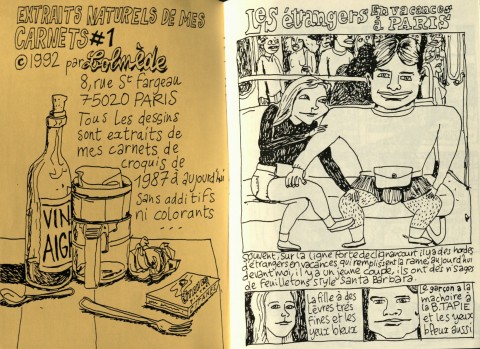 EXTRAITS NATURELS DE MES
CARNETS #1
©1992 par Colmède
8, rue St Fargeau
75020 PARIS
Tous Les dessins
sont extraits de
mes carnets de
croquis de
1987 à aujourd'hui
Sans additifs
ni colorants
...
VIN
AIG
Les étrangers En vacances
à PARIS
souvent, sur la ligne Porte de clignancourt il y a des hordes
d'étrangers en vacances qui remplissent la rame, aujourd'hui
devant moi, il y a un jeune couple, ils ont des visages
de feuilletons style Santa Barbara.
La fille a des
Lèvres très
fines et les
yeux bleux
Le garçon a la
machoire à
la B. TAPIE
et les yeux
bleux aussi